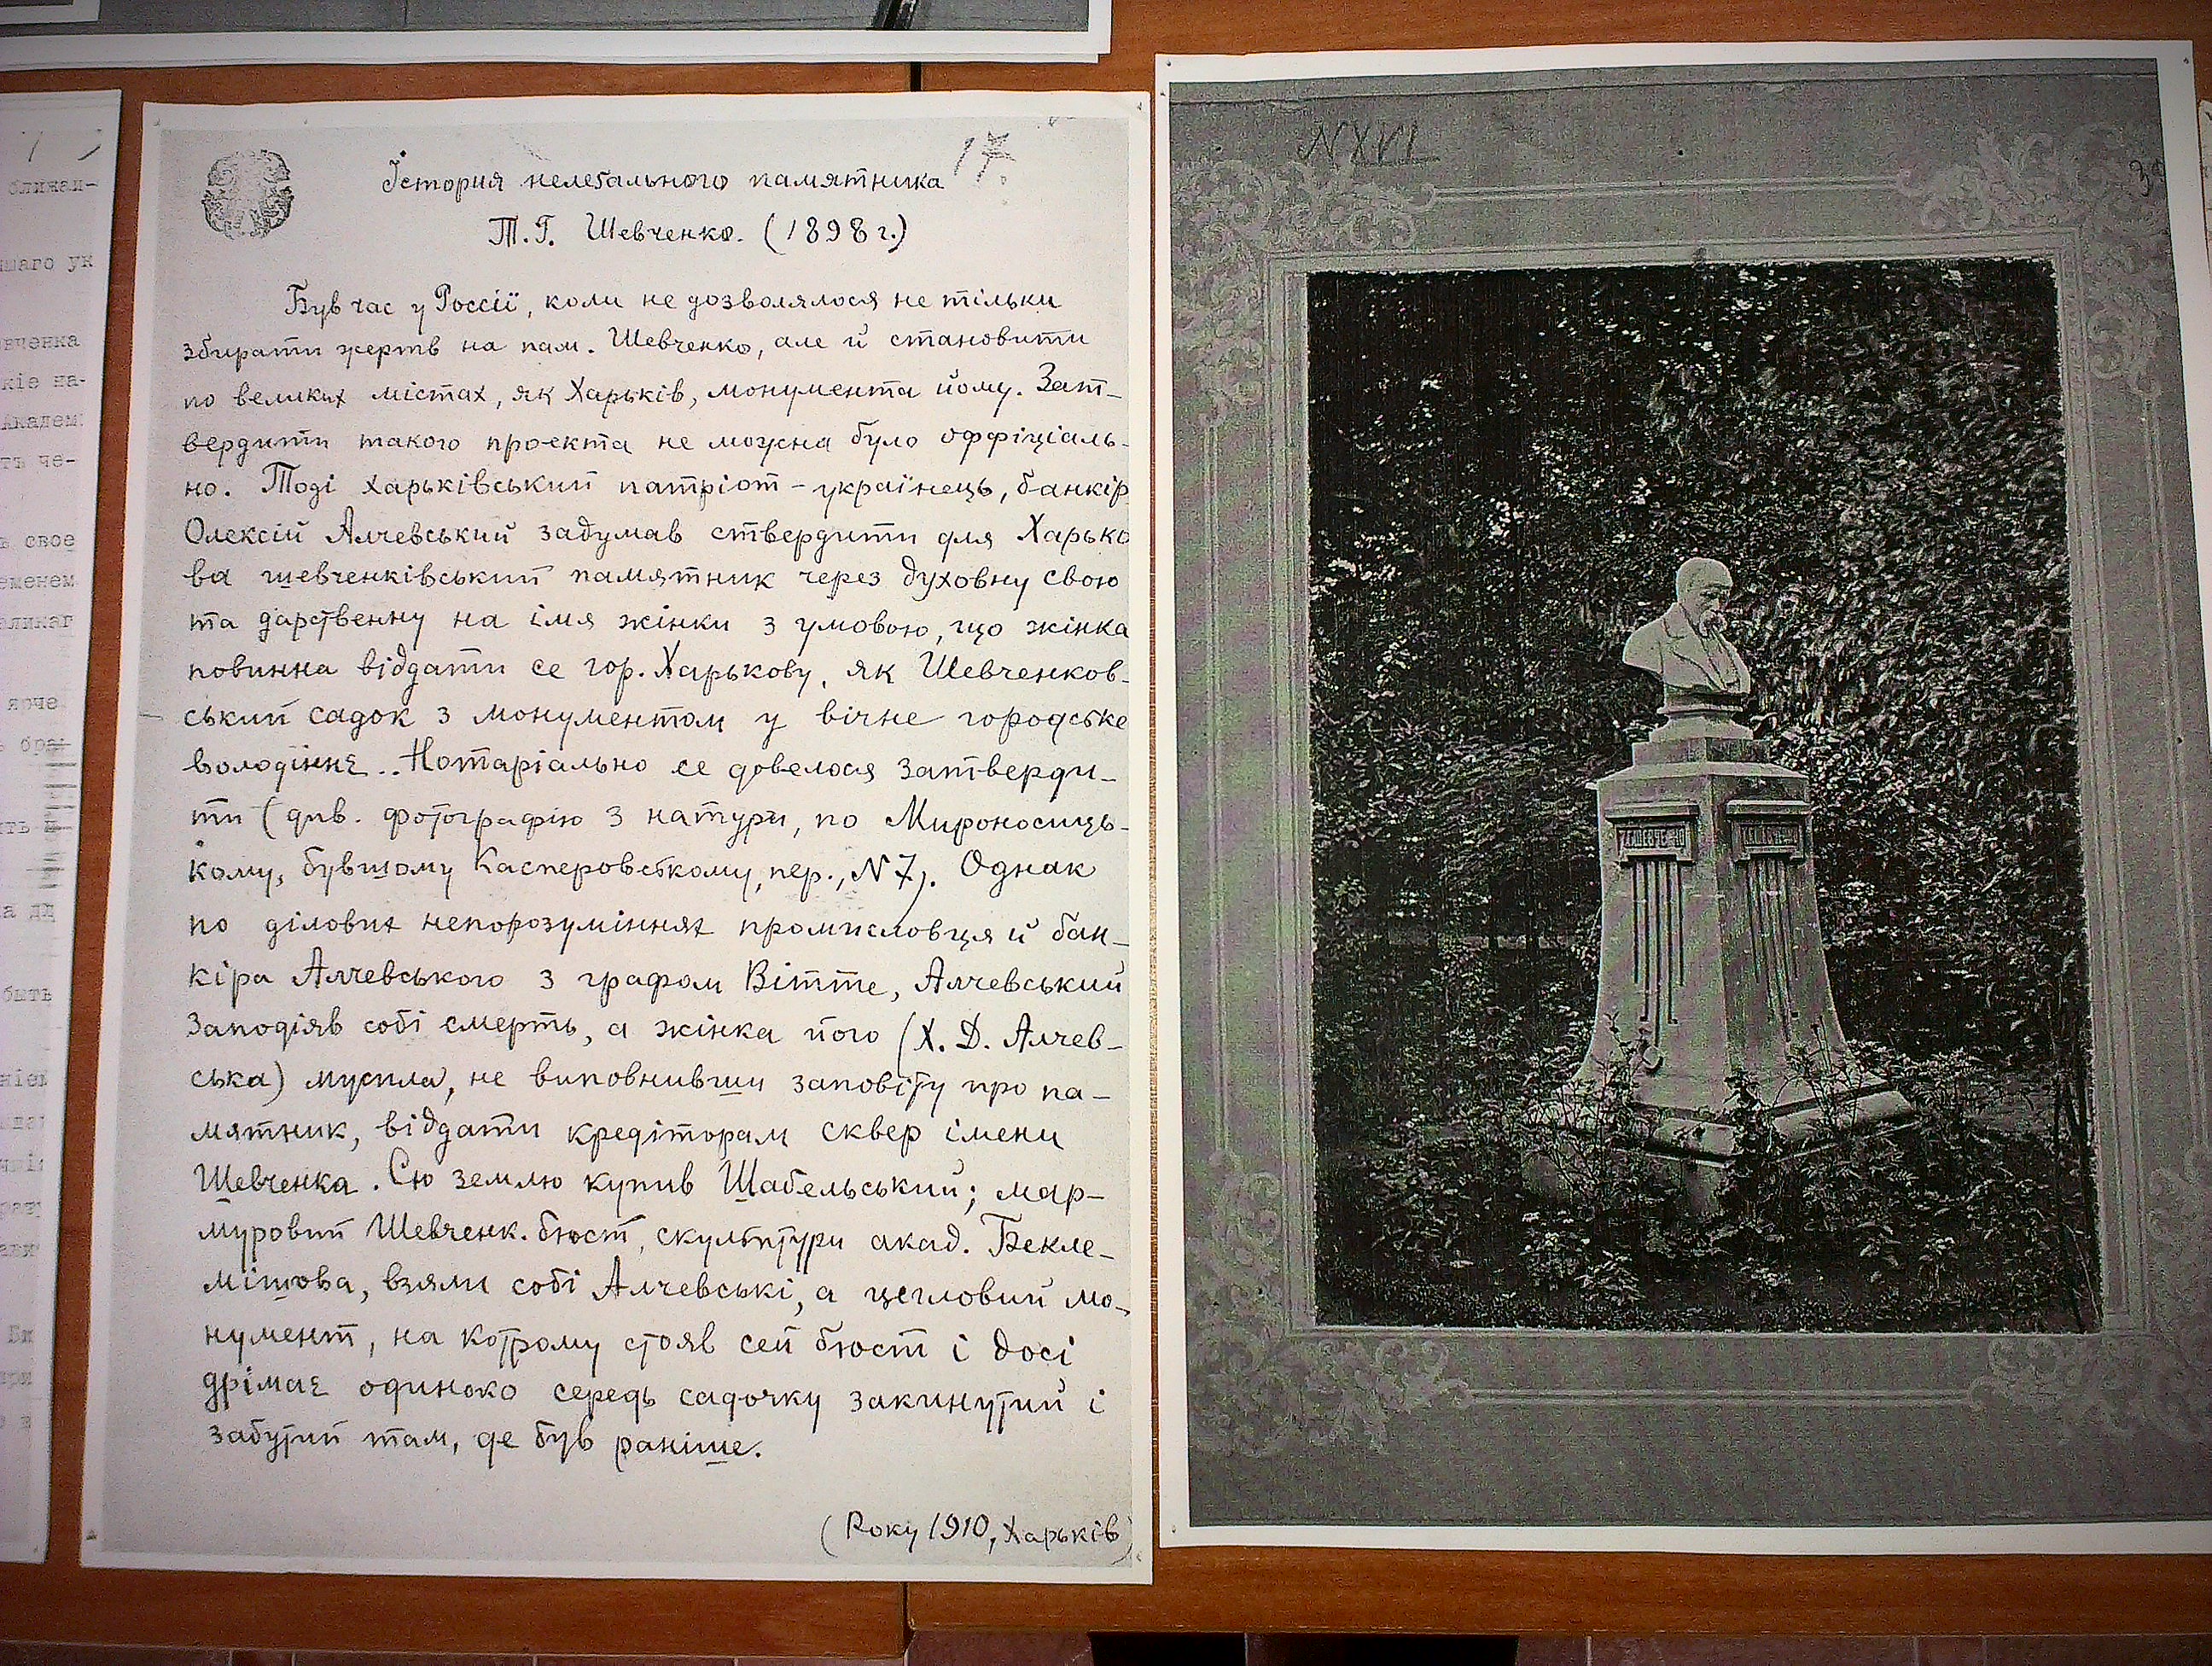 блинал-
шаго ук
вченка
кіе на-
Академ
ть че-
ъ свое
еменем
япче
быть
17.
Їстория нелегального памятника
Т. Г. Шевченко. (1898 г.)
Був час у Россії, коли не дозволялося не тільки
збирати жертв на пам. Шевченко, але й становити
по великих містах, як Харьків, монумента йому. Зат-
вердити такого проекта не можна було оффіціаль-
но. Тоді харьківський патріот-українець, банкір
Олексій Алчевський задумав ствердити для Харько
ва шевченківський памятник через духовну свою
та дарственну на імя жінки з умовою, що жінка
повинна віддати се гор. Харькову, як Шевченков-
ський садок з монументом у вічне городське
володіннє.. Нотаріально се довелося затверди-
ти (див. фотографію з натури, по Мироносиць-
кому, бувшому Касперовському, пер., N 7). Однак
по ділових непорозуміннях промисловця й бан-
кіра Алчевського з графом Вітте, Алчевський
заподіяв собі смерть, а жінка його (Х. Д. Алчев-
ська) мусила, не виповнивши заповіту про па-
мятник, віддати кредіторам сквер імени
Шевченка. Сю землю купив Шабельський; мар-
муровий Шевченк. бюст, скульптури акад. Бекле-
мішова, взяли собі Алчевські, а цегловий мо-
нумент, на котрому стояв сей бюст і досі
дрімає одиноко середь садочку закинутий і
забутий там, де був раніше.
(Року 1910, Харьків)
N XVI
Т. ШЕВЧЕНКО